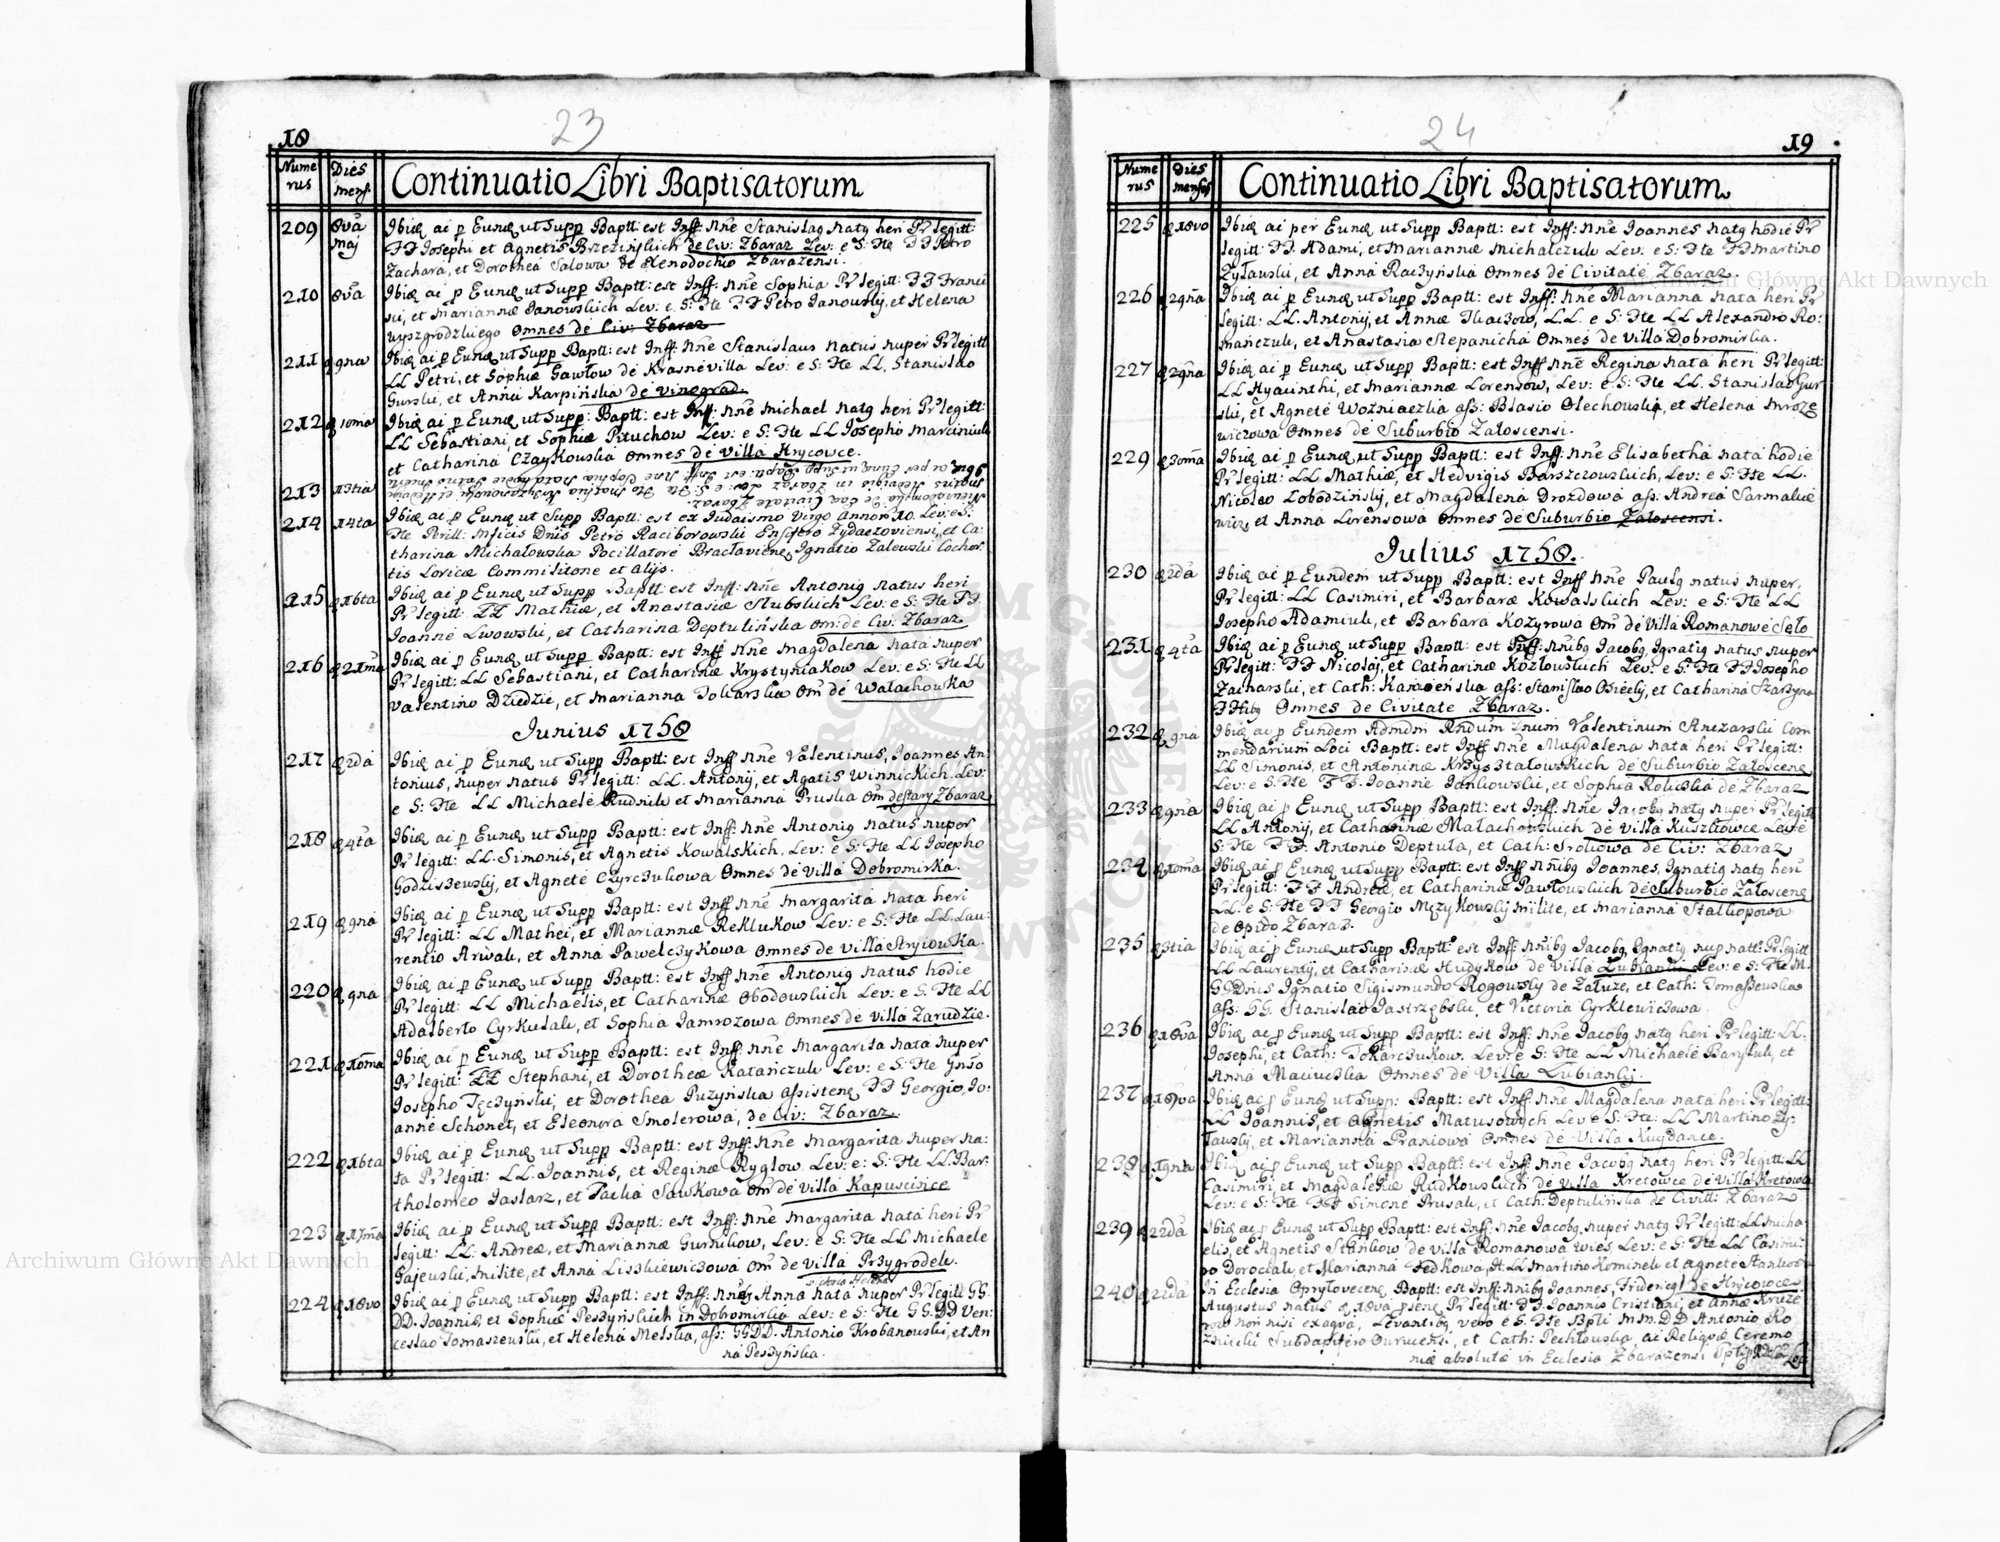 18
23
Nume
rus
Dies
mens:
Continuatio Libri Baptisatorum
209
8va
maj
Ibidẽ ai ꝑ Eundẽ ut Supp Baptt: est Inff: nñe Stanislaꝯ natꝯ heri Pr̃legitt:
FF Josephi et Agnetis Brzezinskich de Civ: Zbaraz Lev: e S: Fte FF Petro
Zachara, et Dorothea Salowa de Xenodochio Zbarazensi.
210
8va
Ibidẽ ai ꝑ Eundẽ ut Supp Baptt: est Inff: nñe Sophia Pr̃legitt: FF Franci
sci, et Mariannæ Janowskich Lev: e S: Fte FF Petro Janowsky, et Helena
Wyszgrodzkiego Omnes de Civ: Zbaraz
211
9na
Ibidẽ ai ꝑ Eundẽ ut Supp Baptt: est Inff: nñe Stanislaus natus nuper Pr̃legitt
LL Petri, et Sophiæ Gawłow de Krasnévilla Lev: e S: Fte LL Stanislao
Gurski, et Anna Karpińska de Vinegrad.
212
10ma
Ibidẽ ai ꝑ Eundẽ ut Supp: Baptt: est Inff: nñe Michael natꝯ heri Pr̃legitt:
LL Sebastiani, et Sophiæ Pituchow Lev: e S: Fte LL Josepho Marciniuk
et Catharina Czaykowska Omnes de Villa Hnycowce.
213
13tia
214
14ta
Ibidẽ ai ꝑ Eundẽ ut Supp Baptt: est ex Judaismo Virgo Annor 10. Lev: e S:
Fte Perill: Mficis Dnis Petro Raciborowski Ensifero Zydaczoviensi, et Ca:
tharina Michałowska Pocillatore Bractaviene, Ignatio Zalewski Cohor:
tis Loricæ Commilitone et alijs.
215
16ta
Ibidẽ ai ꝑ Eundẽ ut Supp Baptt: est Inff: nñe Antoniꝯ natus heri
Pr̃legitt: FF Mathiæ, et Anastasiæ Slubskich Lev: e S: Fte FF.
Joanne Lwowski, et Catharina Deptulińska Om: de Civ: Zbaraz
216
21ma
Ibidẽ ai ꝑ Eundẽ ut Supp Baptt: est Inff nñe Magdalena nata nuper
Pr̃legitt: LL Sebastiani, et Catharinæ Krystyniakow Lev: e S: Fte LL
Valentino Dziedzic, et Marianna Tokarska Om̃ de Wałachowka
Junius 1758
217
2da
Ibidẽ ai ꝑ Eundẽ ut Supp Baptt: est Inff nñe Valentinus, Joannes An:
tonius, nuper natus Pr̃legitt: LL. Antonij, et Agatis Winnickich Lev:
e S: Fte LL Michaele Rudnik et Marianna Pruska Om̃ de Stary Zbaraz
218
4ta
Ibidẽ ai ꝑ Eundẽ ut Supp Baptt: est Inff: nñe Antoniꝯ natus nuper
Pr̃legitt: LL: Simonis, et Agnetis Kowalskich, Lev: e S: Fte LL Josepho
Godziszewsky, et Agnete Czyrczukowa Omnes de Villa Dobromirka.
219
9na
Ibidẽ ai ꝑ Eundẽ ut Supp Baptt: est Inff nñe Margarita nata heri
Pr̃legitt: LL Mathei, et Mariannæ Reklukow Lev: e S: Fte LL. Lau:
rentio Arwak, et Anna Pawelczykowa Omnes de Villa Stryiowka.
220
9na
Ibidẽ ai ꝑ Eundẽ ut Supp Baptt: est Inff nñe Antoniꝯ natus hodie
Pr̃legitt: LL Michaelis, et Catharinæ Obodowskich Lev: e S: Fte LL
Adalberto Cyrkutak, et Sophia Jamrozowa Omnes de Villa Zarudzie.
221
10ma
Ibidẽ ai ꝑ Eundẽ ut Supp Baptt: est Inff: nñe Margarita nata nuper
Pr̃legitt: FF Stephani, et Dorotheæ Katańczuk Lev: e S: Fte Gnso
Josepho Tęczyński, et Dorothea Puzyńska assistenẽ FF Georgio, Jo:
anne Schonet, et Eleonora Smolerowa, de Civ: Zbaraz.
222
16ta
Ibidẽ ai ꝑ Eundẽ ut Supp Baptt: est Inff: nñe Margarita nuper na:
ta Pr̃legitt: LL. Joannis, et Reginæ Ryglow Lev: e: S: Fte LL. Bar:
tholomeo Jaslarz, et Taclia Sawkowa Om̃ de Villa Kapuscince
223
17ma
Ibidẽ ai ꝑ Eundẽ ut Supp Baptt: est Inff: nñe Margarita nata heri Pr̃
legitt: LL: Andreæ, et Mariannæ Gurnikow, Lev: e S: Fte LL Michaele
Gajewski, Milite, et Anna Liszkiewiczowa Om̃ de Villa Przygrodek.
224
18vo
Victoria Helena
Ibidẽ ai ꝑ Eundẽ ut Supp Baptt: est Inff: nñibꝯ Anna nata nuper Pr̃legitt GG.
DD. Joannis, et Sophiæ Peszyńskich in Dobromirka Lev: e S: Fte GG DD Ven:
ceslao Tomaszewski, et Helena Melska, ass: GGDD. Antonio Krobanowski, et An
na Peszyńska.
19
24
Nume
rus
Dies
menses
Continuatio Libri Baptisatorum
225
18vo
Ibidẽ ai per Eundẽ ut Supp Baptt: est Inff: nñe Joannes natꝯ hodie Pr̃
legitt: FF Adami, et Mariannæ Michalczuk Lev: e S: Fte FF Martino
Zyławski, et Anna Raczyńska Omnes de Civitate Zbaraz.
226
29na
Ibidẽ ai ꝑ Eundẽ ut Supp Baptt: est Inff: nñe Marianna nata heri Pr̃
legitt: LL. Antonij, et Annæ Tkaczow, LL. e S: Fte LL Alexandro Ro:
manczuk, et Anastasia Stepanicha Omnes de Villa Dobromirka.
227
29na
Ibidẽ ai ꝑ Eundẽ ut Supp Baptt: est Inff nñe Regina nata heri Pr̃legitt:
LL Hyacinthi, et Mariannæ Lorensow, Lev: e S: Fte LL. Stanislao Gur
ski, et Agnete Wozniaczka ass: Blasio Olechowski, et Helena Mroze
wiczowa Omnes de Suburbio Załoscensi.
229
30ma
Ibidẽ ai ꝑ Eundẽ ut Supp Baptt: est Inff: nñe Elisabetha nata hodie
Pr̃legitt: LL Mathiæ, et Hedvigis Barszczowskich, Lev: e S: Fte LL.
Nicolao Łobodzińsky, et Magdalena Drozdowa ass: Andrea Sarmakie
wicz, et Anna Lorensowa Omnes de Suburbio Załoscensi.
Julius 1758.
230
2da
Ibidẽ ai ꝑ Eundem ut Supp Baptt: est Inff nñe Paulꝯ natus nuper,
Pr̃legitt: LL Casimiri, et Barbaræ Kowalskich Lev: e S: Fte LL
Josepho Adamiuk, et Barbara Kozyrowa Om̃ de Villa Romanowe Seło
231
4ta
Ibidẽ ai ꝑ Eundẽ ut Supp Baptt: est Inff: nñibꝯ Jacobꝯ, Ignatiꝯ natus nuper
Pr̃legitt: FF Nicolai, et Catharinæ Kozłowskich Lev: e S: Fte FF Josepho
Zacharski, et Cath: Kamieńska ass: Stanislao Osiecky, et Catharina Szarzyna
FFibꝯ Omnes de Civitate Zbaraz.
232
9na
Ibidẽ ai ꝑ Eundem Admdm Rndum Dnum Valentinum Anczarski Com
mendarium Loci Baptt: est Inff nñe Magdalena nata heri Pr̃legitt:
LL Simonis, et Antoninæ Krzysztalowskich de Suburbio Załoscenẽ
Lev: e S: Fte FF. Joanne Jankowski, et Sophia Rolicka de Zbaraz
233
9na
Ibidẽ ai ꝑ Eundẽ ut Supp Baptt: est Inff: nñe Jacobꝯ natꝯ nuper Pr̃legitt
LL Antonij, et Catharinæ Małachowskich de Villa Kuszkowce Lev: e
S: Fte FF. Antonio Deptuła, et Cath: Srokowa de Civ: Zbaraz
234
10ma
Ibidẽ ai ꝑ Eundẽ ut Supp Baptt: est Inff nñibꝯ Joannes, Ignatiꝯ natꝯ heri
Pr̃legitt: FF Andreæ, et Catharinæ Pawłowskich de Suburbio Załoscenẽ
LL. e S: Fte FF Georgio Męzykowsky Milite, et Marianna Stallopowa
de Opido Zbaraz.
235
3tia
Ibidẽ ai ꝑ Eundẽ ut Supp Baptt: est Inff: nñibꝯ Jacobꝯ, Ignatiꝯ nup natt: Pr̃legitt
LL Laurentij, et Catharinæ Hudykow de Villa Lubianki Lev: e S: Fte M.
GG Dnis Ignatio Sigismundo Rogowsky de Załuze, et Cath: Tomaszewska
ass: GG. Stanislao Jastrzębski, et Victoria Cyrklewiczowa.
236
18va
Ibidẽ ai ꝑ Eundẽ ut Supp Baptt: est Inff: nñe Jacobꝯ natꝯ heri Pr̃legitt: LL.
Josephi, et Cath: Tokarczukow. Lev: e S: Fte LL Michaele Baryluk, et
Anna Maciucka Omnes de Villa Lubianky.
237
18va
Ibidẽ ai ꝑ Eundẽ ut Supp: Baptt: est Inff: nñe Magdalena nata heri Pr̃legitt:
LL Joannis, et Agnetis Matusowych Lev e S: Fte: LL Martino Zy:
ławsky, et Marianna Praniowa Omnes de Villa Kuydance.
238
19na
Ibidẽ ai ꝑ Eundẽ ut Supp Baptt: est Inff: nñe Jacobꝯ natꝯ heri Pr̃legitt: LL
Casimiri, et Magdalenæ Rudkowskich de Villa Kretowce de Villa Kretowce
Lev: e S: Fte FF Simone Prusak, et Cath: Deptulińska de Civitt: Zbaraz
239
22da
Ibidẽ ai ꝑ Eundẽ ut Supp Baptt: est Inff: nñe Jacobꝯ nuper natꝯ Pr̃legitt: LL Micha:
elis, et Agnetis Stankow de Villa Romanowa Wieś, Lev: e S: Fte LL Casimi:
ro Dorociak, et Marianna Fedkowa, A: LL Martino Kominek et Agnete Stankowa
240
22da
de Hnycowces
In Ecclesia Oprylovcenẽ Baptt: est Inff: nñibꝯ Joannes, Fridericꝯ
Augustus natus 18va Pr̃legitt: FF. Joannis Cristiani, et Annæ Kruze
Levantibꝯ vero e S: Fte Bpti MM. DD Antonio Ro
znicki Subdapifero Owrucensi, et Cath: Pechłowska ai Reliquæ Ceremo
niæ absolutæ in Ecclesia Zbarazensi
Archiwum Główne Akt Dawnych
Archiwum Główne Akt Dawnych
ARCHIWUM GŁÓWNE AKT DAWNYCH